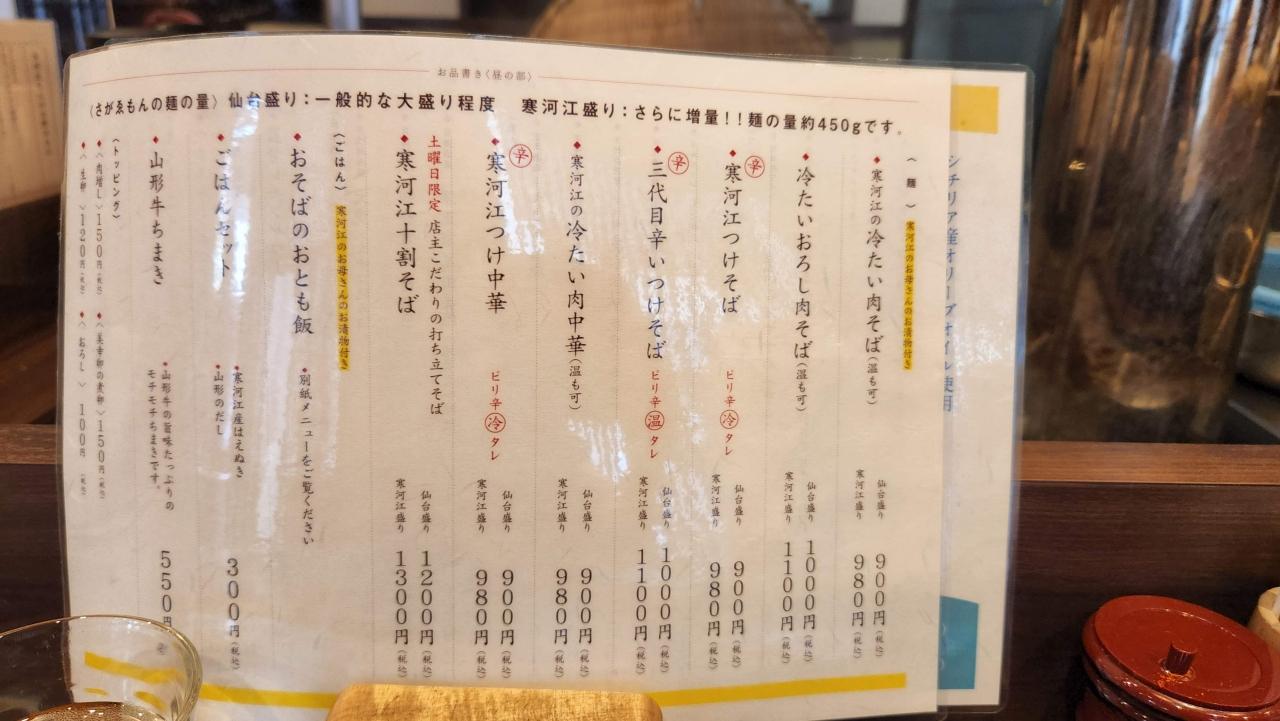 お品書き〈昼の部〉
〈さがゑもんの麺の量〉仙台盛り：一般的な大盛り程度　寒河江盛り：さらに増量！！麺の量約450gです。
〈麺〉寒河江のお母さんのお漬物付き
寒河江の冷たい肉そば(温も可)
仙台盛り 900円(税込)
寒河江盛り 980円(税込)
冷たいおろし肉そば(温も可)
仙台盛り 1000円(税込)
寒河江盛り 1100円(税込)
辛
寒河江つけそば ピリ辛冷タレ
仙台盛り 900円(税込)
寒河江盛り 980円(税込)
辛
三代目辛いつけそば ピリ辛温タレ
仙台盛り 1000円(税込)
寒河江盛り 1100円(税込)
寒河江の冷たい肉中華(温も可)
仙台盛り 900円(税込)
寒河江盛り 980円(税込)
辛
寒河江つけ中華 ピリ辛冷タレ
仙台盛り 900円(税込)
寒河江盛り 980円(税込)
土曜日限定 店主こだわりの打ち立てそば
寒河江十割そば
仙台盛り 1200円(税込)
寒河江盛り 1300円(税込)
〈ごはん〉寒河江のお母さんのお漬物付き
おそばのおとも飯 ・別紙メニューをご覧ください
ごはんセット
・寒河江産はえぬき
・山形のだし
300円(税込)
山形牛ちまき
・山形牛の旨味たっぷりの
モチモチちまきです。
550円
〈トッピング〉
〈肉増し〉150円(税込) 〈美幸卵の煮卵〉150円(税込)
〈生卵〉120円(税込) 〈おろし〉100円(税込)
シチリア産オリーブオイル使用